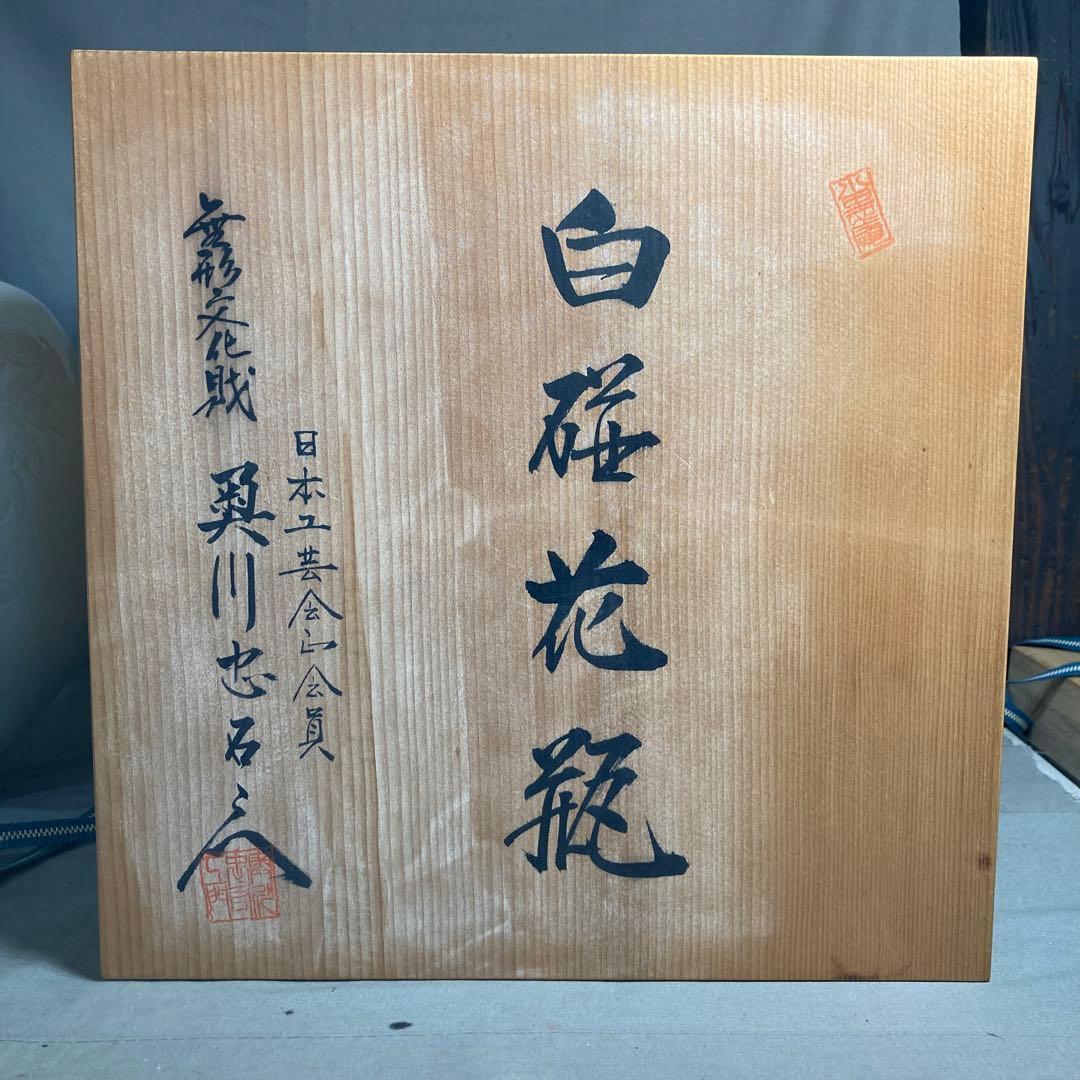 白磁花瓶
日本工芸会正会員
無形文化財 奥川忠右